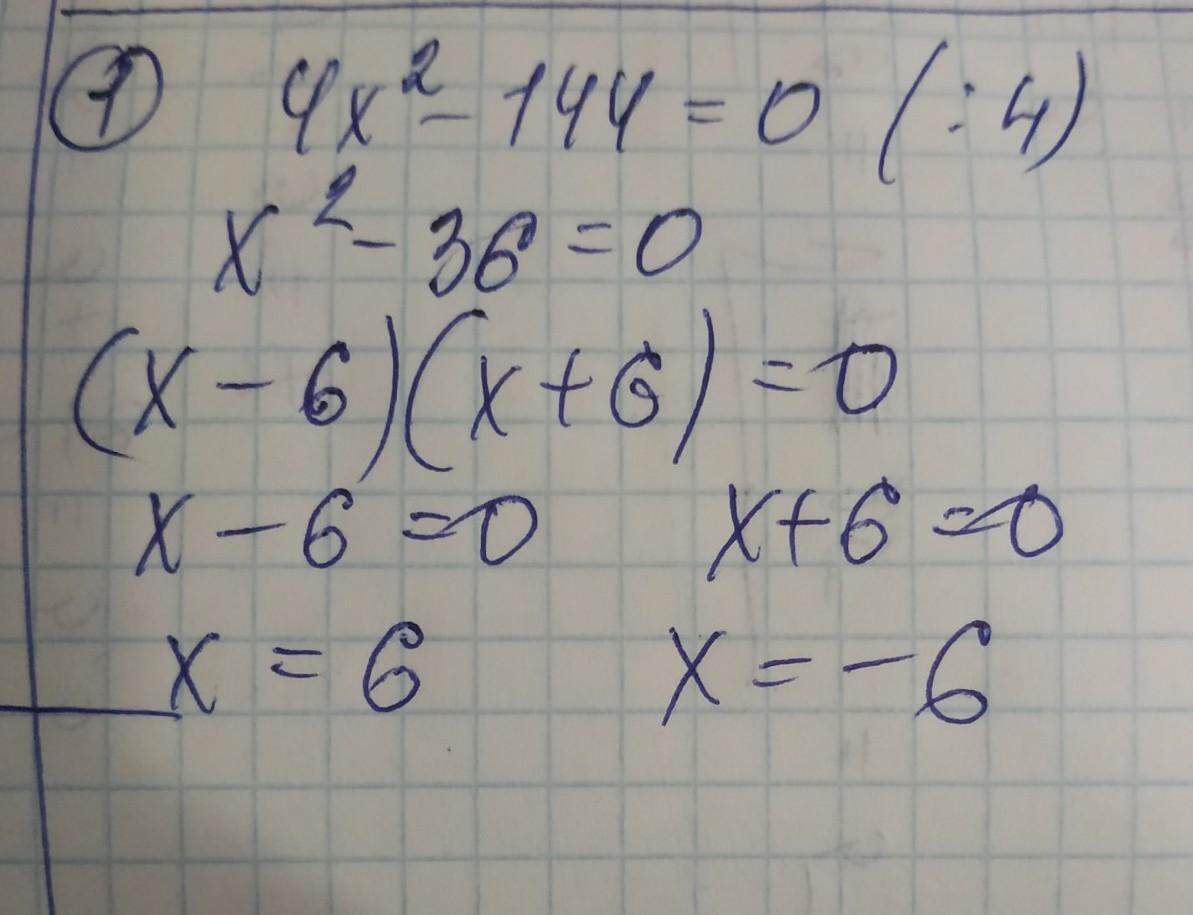 ① 4x² - 144 = 0 (: 4)
x² - 36 = 0
(x - 6)(x + 6) = 0
x - 6 = 0 x + 6 = 0
x = 6 x = - 6